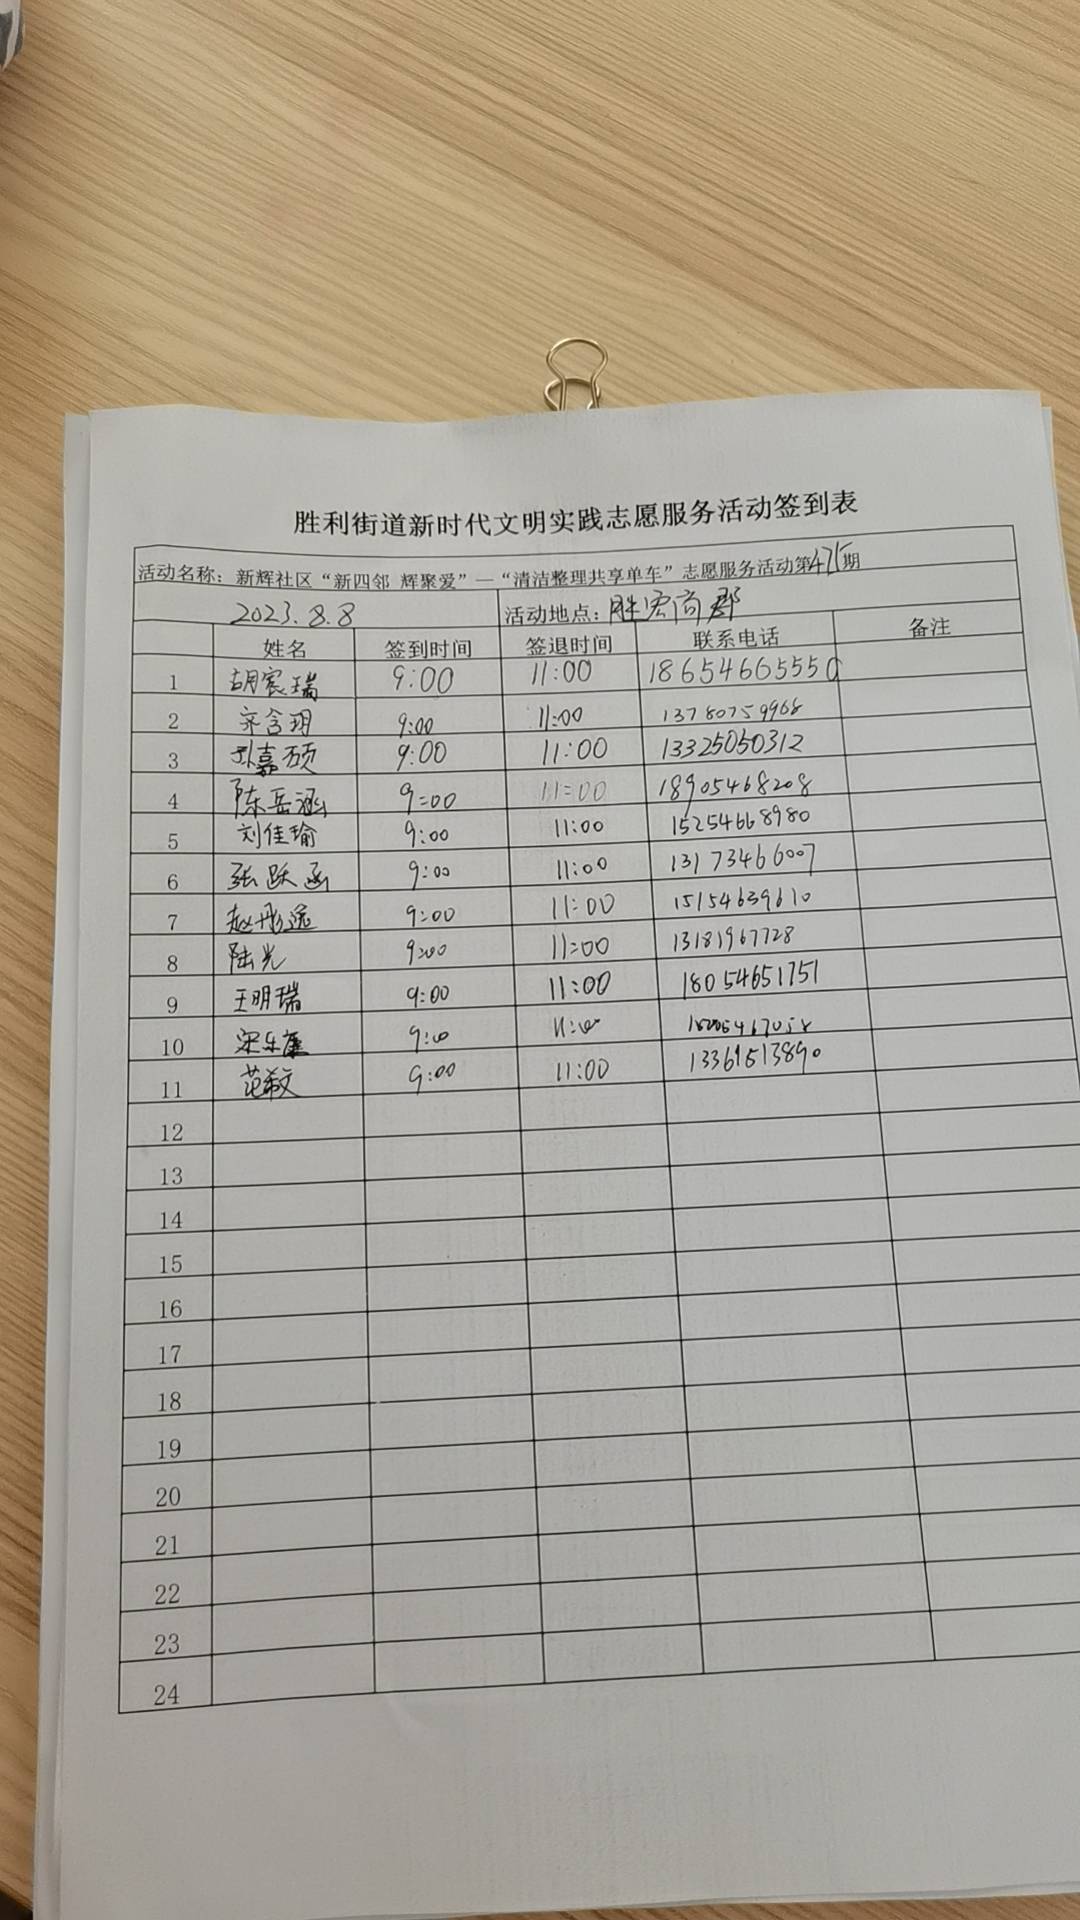 胜利街道新时代文明实践志愿服务活动签到表
活动名称：新辉社区“新四邻 辉聚爱”—“清洁整理共享单车”志愿服务活动第475期
2023.8.8 活动地点：胜宏尚郡
姓名 签到时间 签退时间 联系电话 备注
1 胡宸瑞 9:00 11:00 18654665550
2 齐含玥 9:00 11:00 13780759968
3 孙嘉硕 9:00 11:00 13325050312
4 陈岳涵 9:00 11:00 18905468208
5 刘佳瑜 9:00 11:00 15254668980
6 张跃函 9:00 11:00 13173466007
7 赵彤遥 9:00 11:00 15154639610
8 陆光 9:00 11:00 13181967728
9 王明瑞 9:00 11:00 18054651751
10 9:00 11:00
11 范毅文 9:00 11:00 13361513890
12
13
14
15
16
17
18
19
20
21
22
23
24